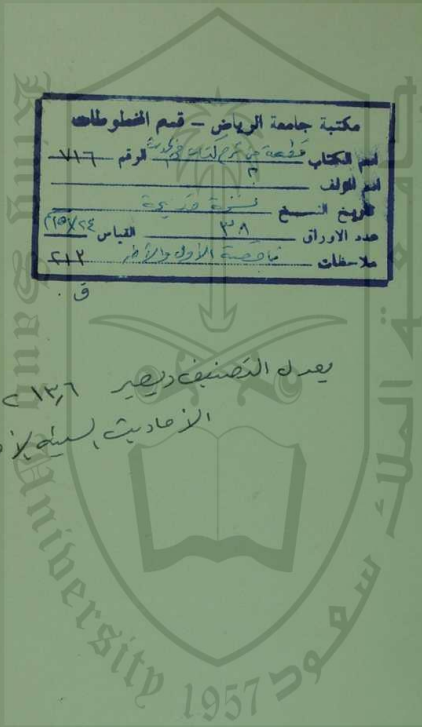 مكتبة جامعة الرياض – قسم المخطوطات
اسم الكتاب قطعة من شرح كتاب في الحديث الرقم ٧١٦
اسم المؤلف
تاريخ النسخ نسخة قديمة
عدد الاوراق ٣٨ القياس ٢٤×١٥
ملاحظات ناقصة الأول والآخر ٢١٣
ق
يعدل التصنيف ويصير ٢١٣٫٦
الأحاديث
جامعة الملك سعود
King Saud University
1957